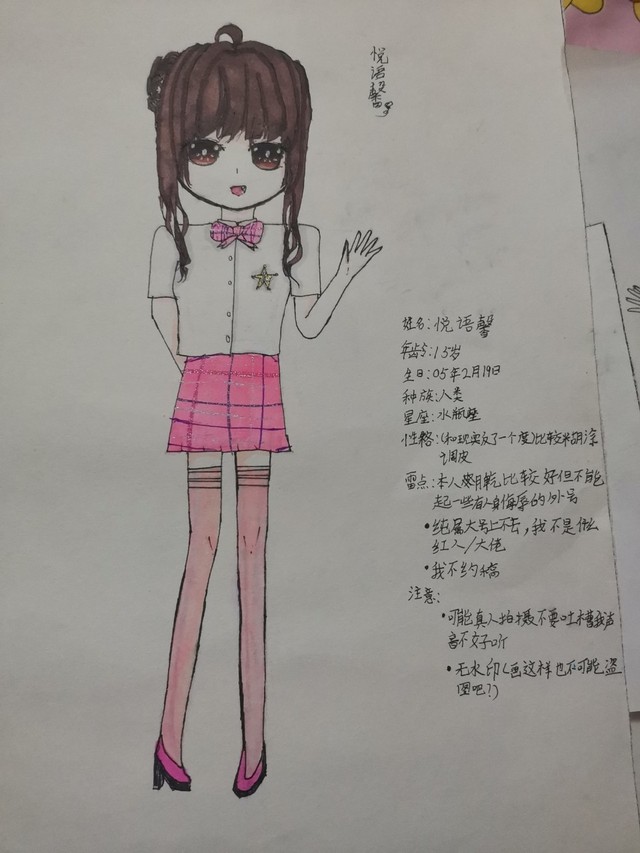 悦语馨
姓名:悦语馨
年龄:15岁
生日:05年2月19日
种族:人类
星座:水瓶座
性格:(和现实反了一个度)比较糊涂
调皮
雷点:本人脾气比较好但不能
起一些有人身侮辱的外号
•纯属大号上不去,我不是什么
红人/大佬
•我不约稿
注意:
•可能真人拍摄不要吐槽我声
音不好听
•无水印(画这样也不可能盗
图吧?)